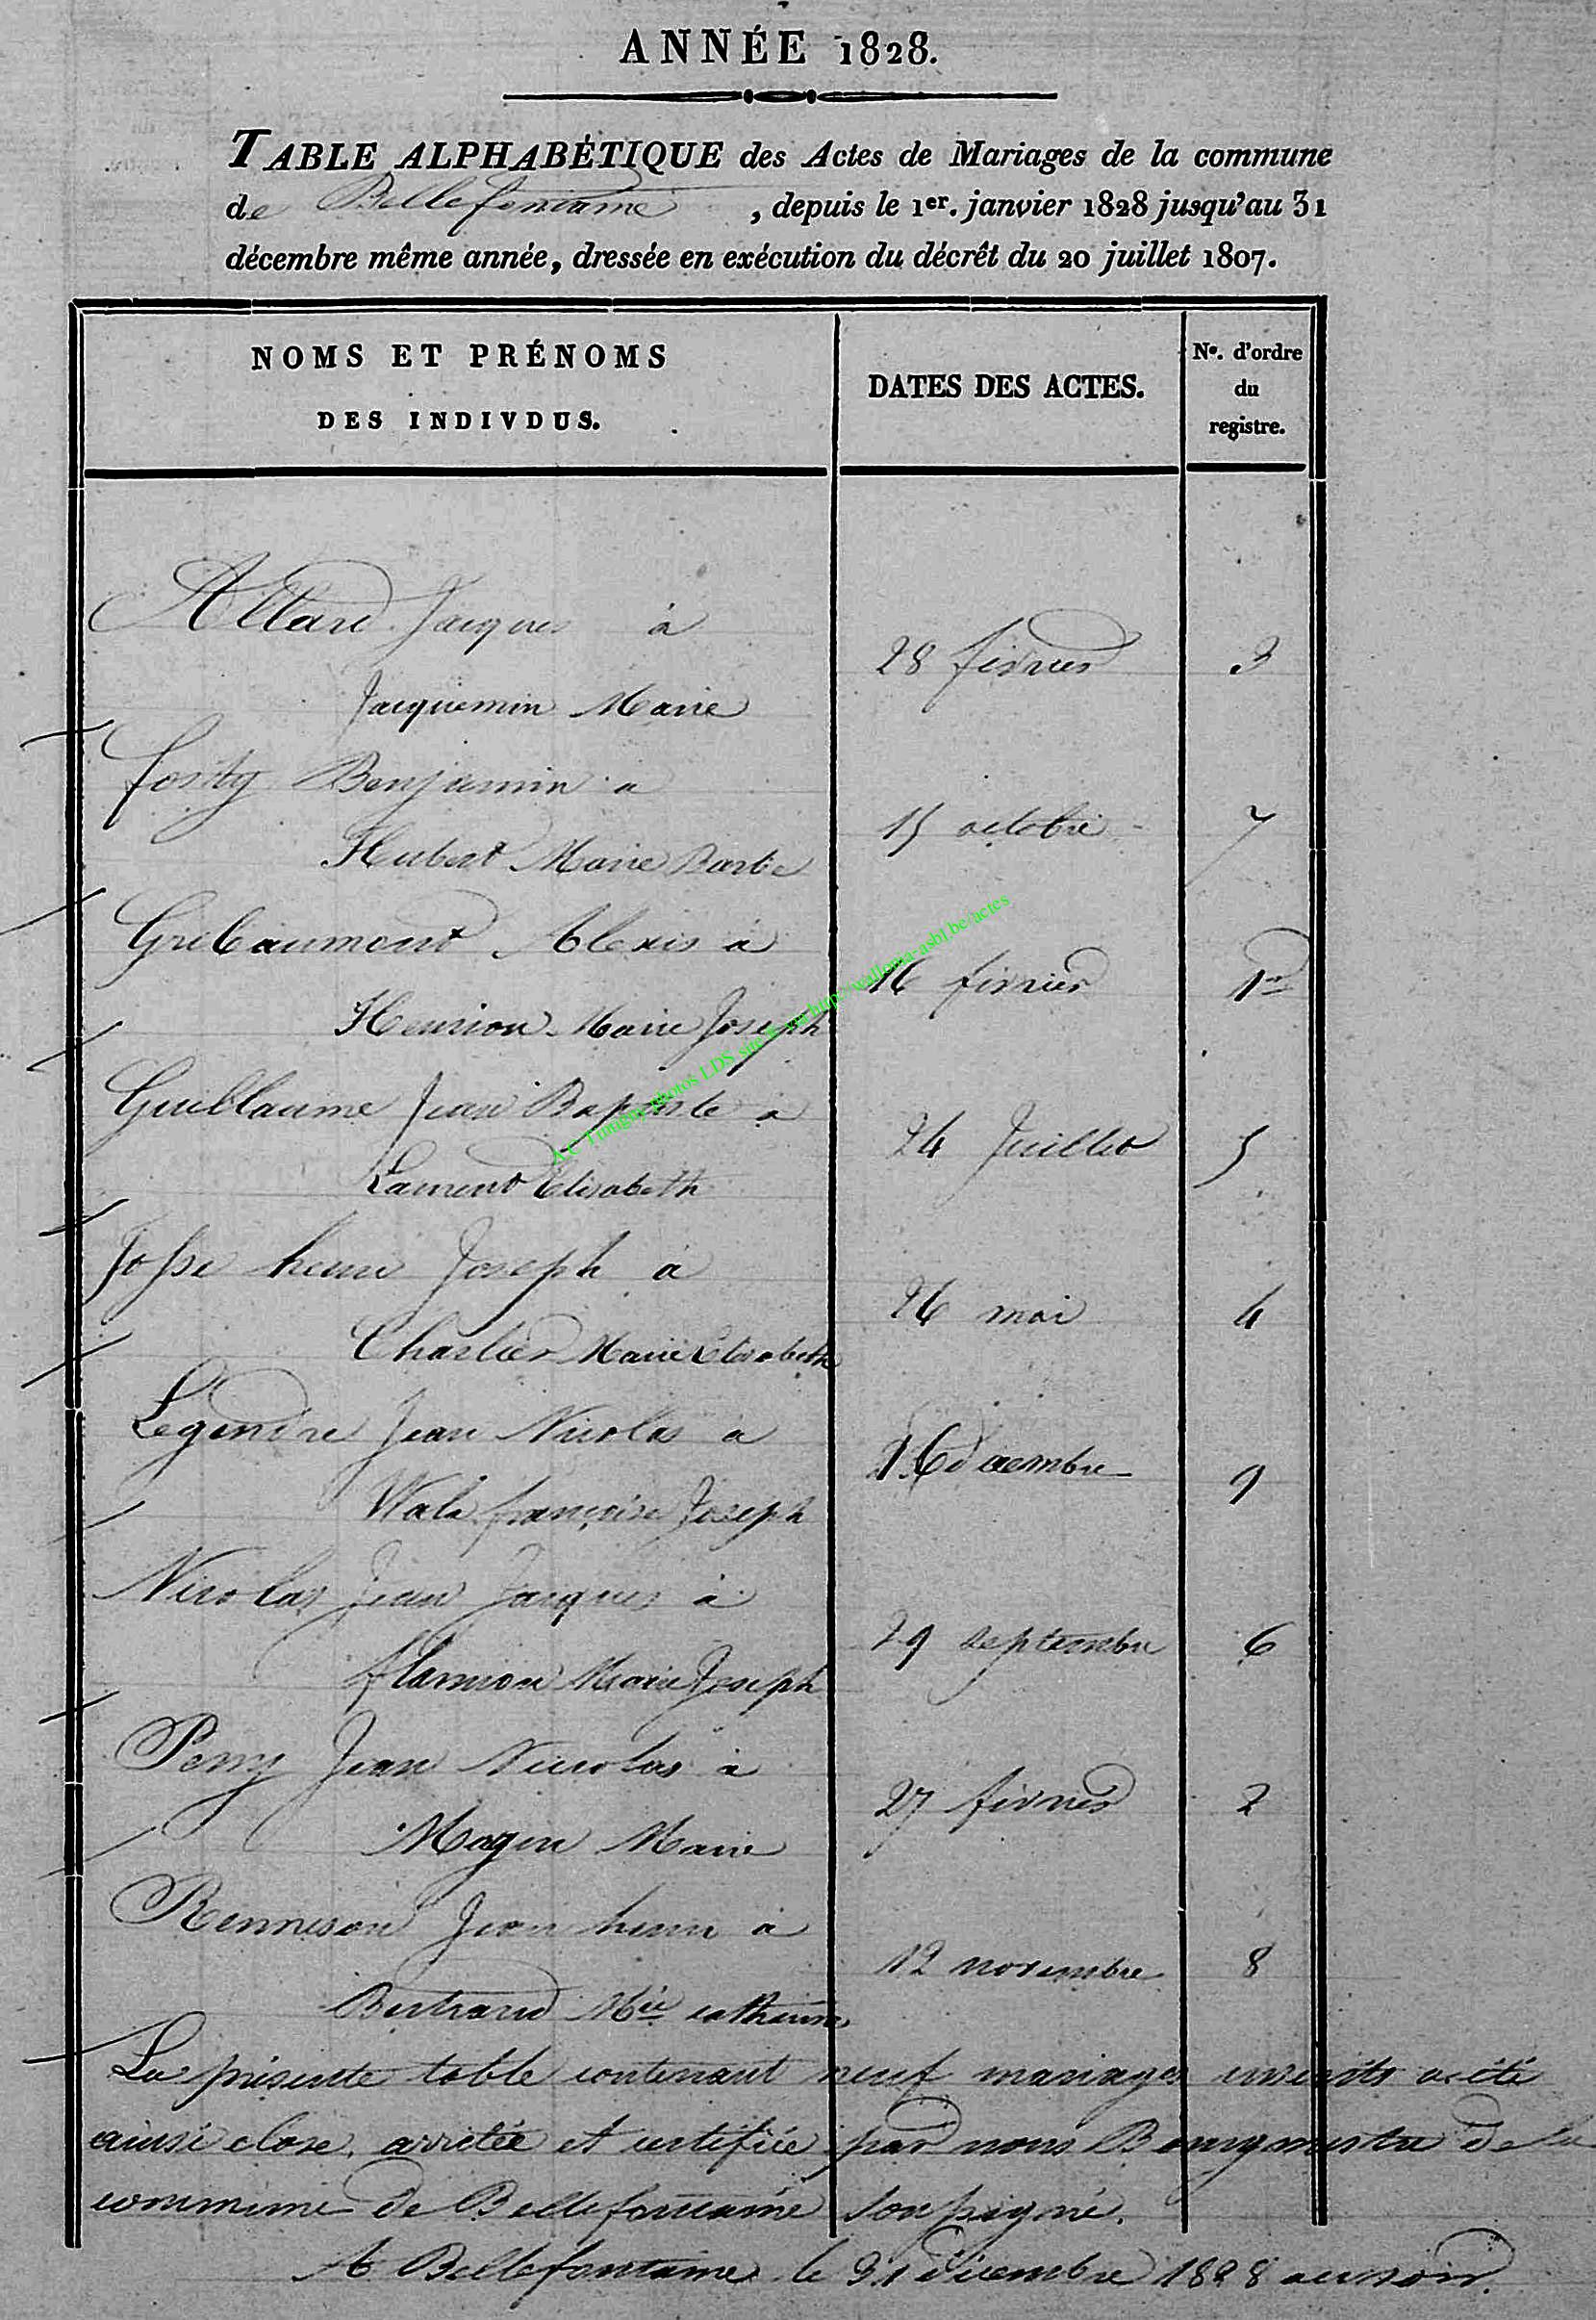 ANNÉE 1828.
TABLE ALPHABÉTIQUE des Actes de Mariages de la commune
de Bellefontaine, depuis le 1er. janvier 1828 jusqu'au 31
décembre même année, dressée en exécution du décrêt du 20 juillet 1807.
NOMS ET PRÉNOMS
DES INDIVDUS.
DATES DES ACTES.
No. d'ordre
du
registre.
Allard Jacques à
28 février 3
Jacquemin Marie
fosty Benjamin a
15 octobre 7
Hubert Marie Barbe
Gribaumont Alexis à
16 février 1er
Henrion Marie Joseph
Guillaume Jean Baptiste à
24 Juillet 5
Laurent Elisabeth
Josse henri Joseph à
26 mai 4
Charlier Marie Elisabeth
Legendre Jean Nicolas a
16 décembre 9
Wala françoise Joseph
Nicolas Jean Jacques à
29 septembre 6
flamion Marie Joseph
Perry Jean Nicolas à
27 février 2
Magin Marie
Renneson Jean henri à
12 novembre 8
Bertrand Mie catherine
La présente table contenant neuf mariages inscrits a été
ainsi close, arrêtée et certifiée par nous Bourgmestre de la
commune de Bellefontaine soussigné.
A Bellefontaine le 31 décembre 1828 au soir.
photos LDS site http://wallonia-asbl.be/actes